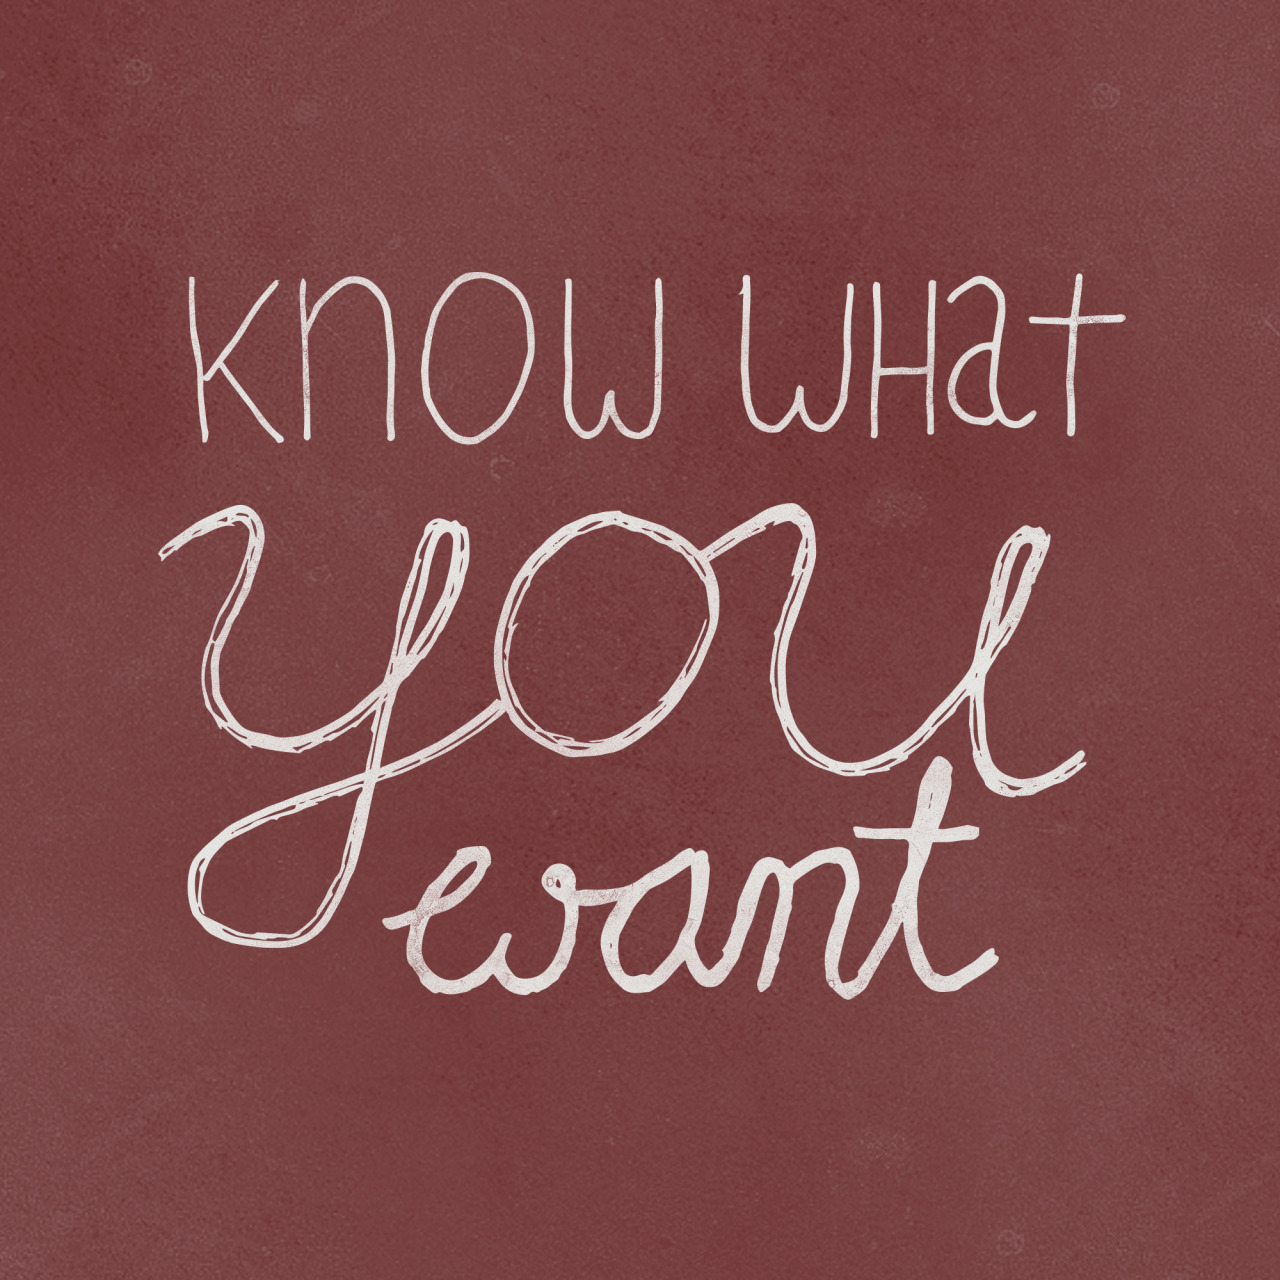 KNOW WHAT
you
want